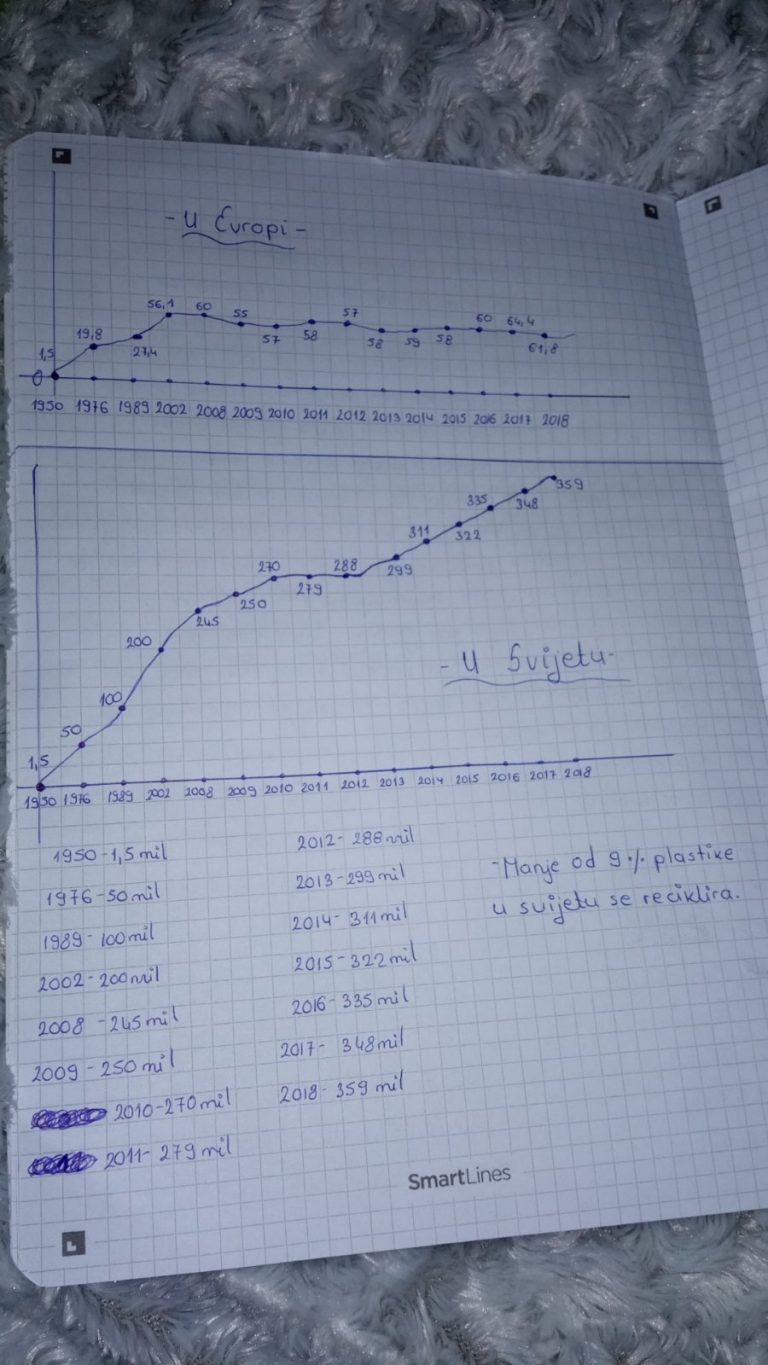 - U Evropi -
56,1 60 55 57 58 57 58 59 58 60 64,4 61,8
1,5 19,8 27,4
0
1950 1976 1989 2002 2008 2009 2010 2011 2012 2013 2014 2015 2016 2017 2018
1,5 50 100 200 245 250 270 279 288 299 311 322 335 348 359
- U Svijetu -
1950 1976 1989 2002 2008 2009 2010 2011 2012 2013 2014 2015 2016 2017 2018
1950 - 1,5 mil
1976 - 50 mil
1989 - 100 mil
2002 - 200 mil
2008 - 245 mil
2009 - 250 mil
2010 - 270 mil
2011 - 279 mil
2012 - 288 mil
2013 - 299 mil
2014 - 311 mil
2015 - 322 mil
2016 - 335 mil
2017 - 348 mil
2018 - 359 mil
- Manje od 9% plastike
u svijetu se reciklira.
SmartLines